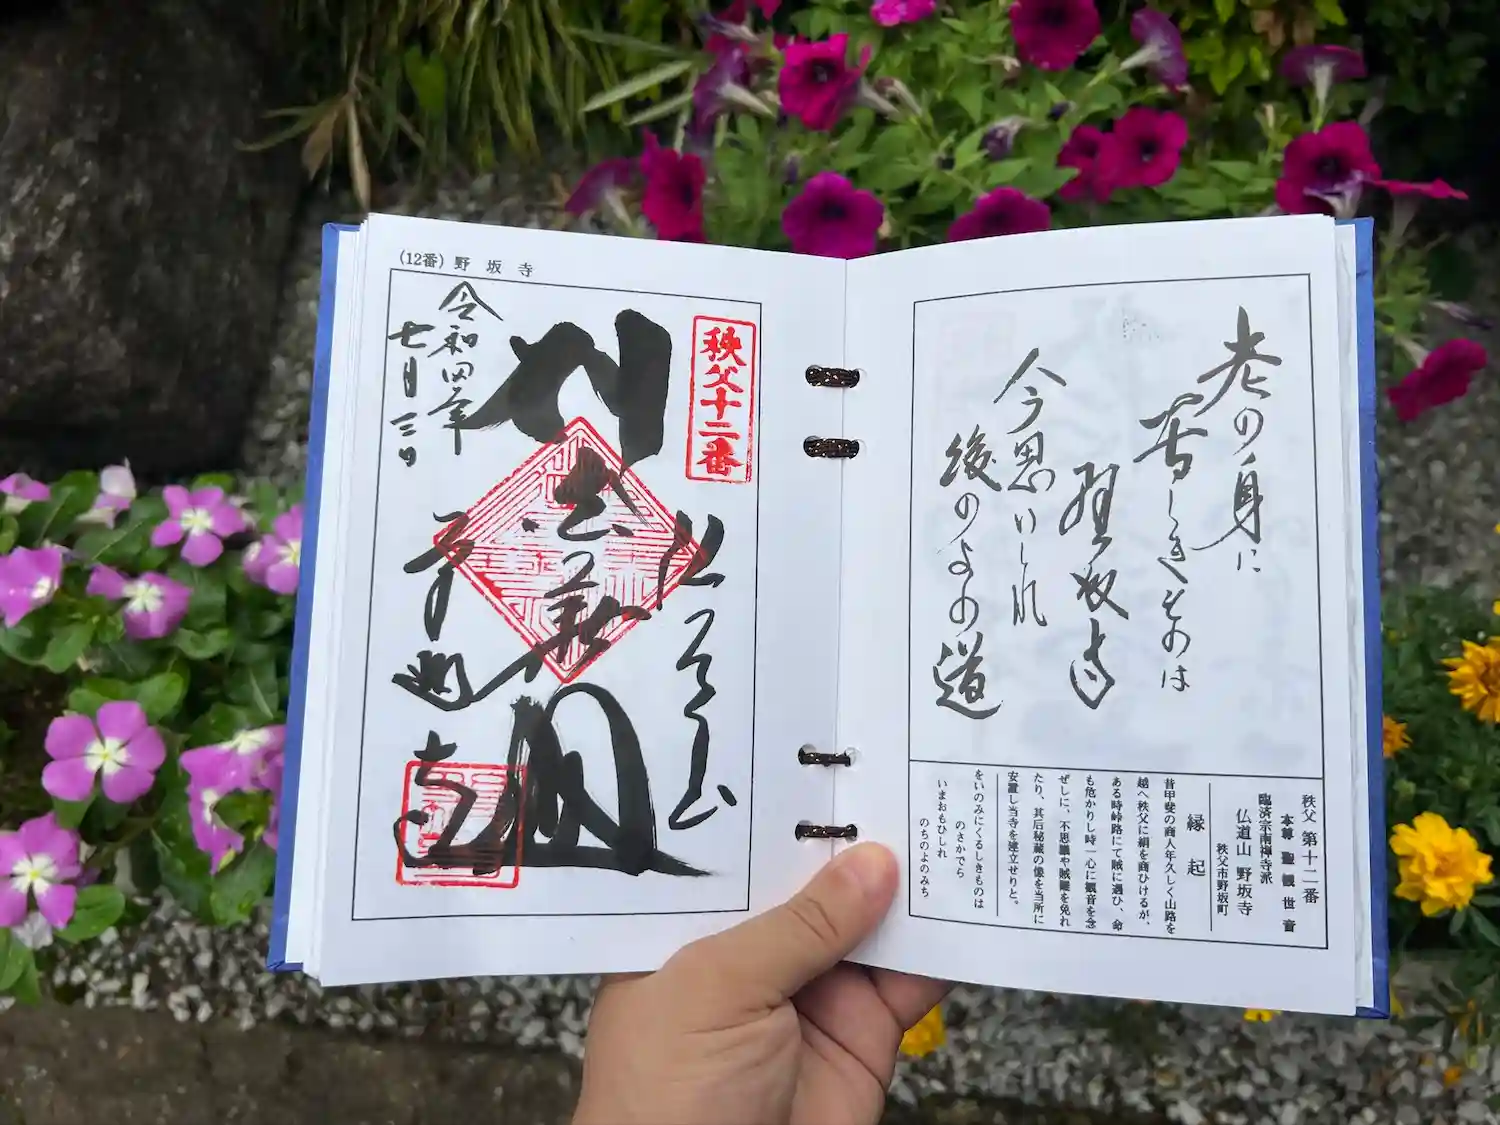 (12番) 野坂寺
秩父十二番
仏道山
野坂寺
令和四年
七月三日
老の身に
苦しきものは
野坂寺
今思いしれ
後のよの道
秩父 第十二番
本尊 聖観世音
臨済宗南禅寺派
仏道山 野坂寺
秩父市野坂町
縁起
昔甲斐の商人年久しく山路を
越へ秩父に絹を商ひけるが、
ある時峠路にて賊に遇ひ、命
も危かりし時一心に観音を念
ぜしに、不思議や賊難を免れ
たり、其后秘蔵の像を当所に
安置し当寺を建立せりと。
をいのみにくるしきものは
のさかでら
いまおもひしれ
のちのよのみち